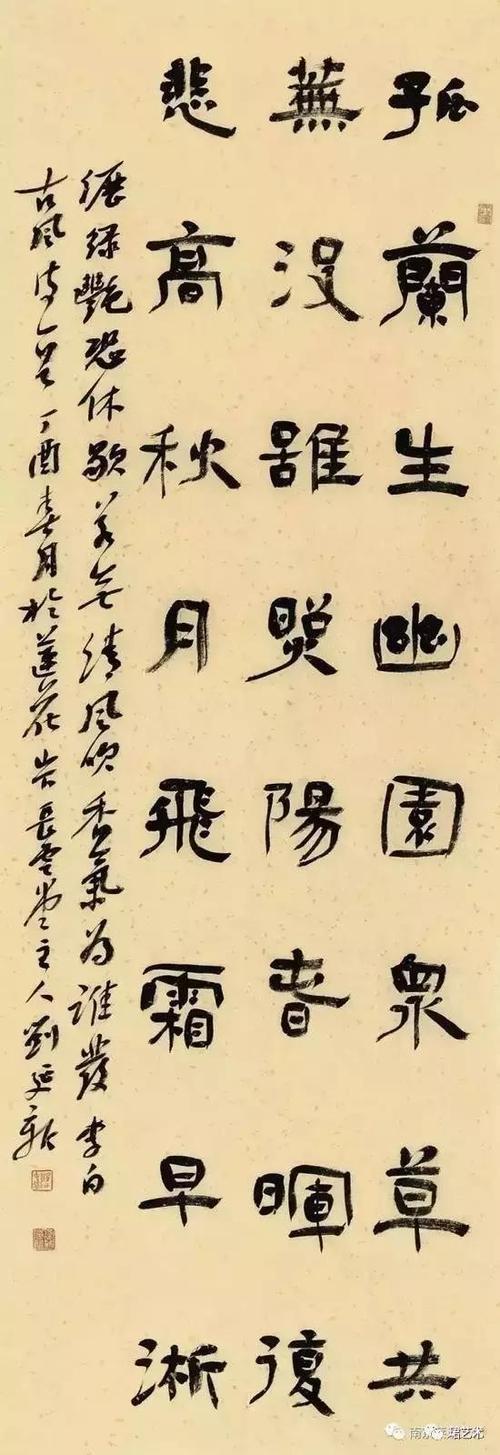 孤蘭生幽園衆草共
蕪没雖照陽春暉復
悲高秋月飛霜早淅
瀝緑艷恐休歇若無清風吹香氣為誰發 李白
古風詩一首 丁酉春月於蓮花長雲堂主人劉
珺艺术